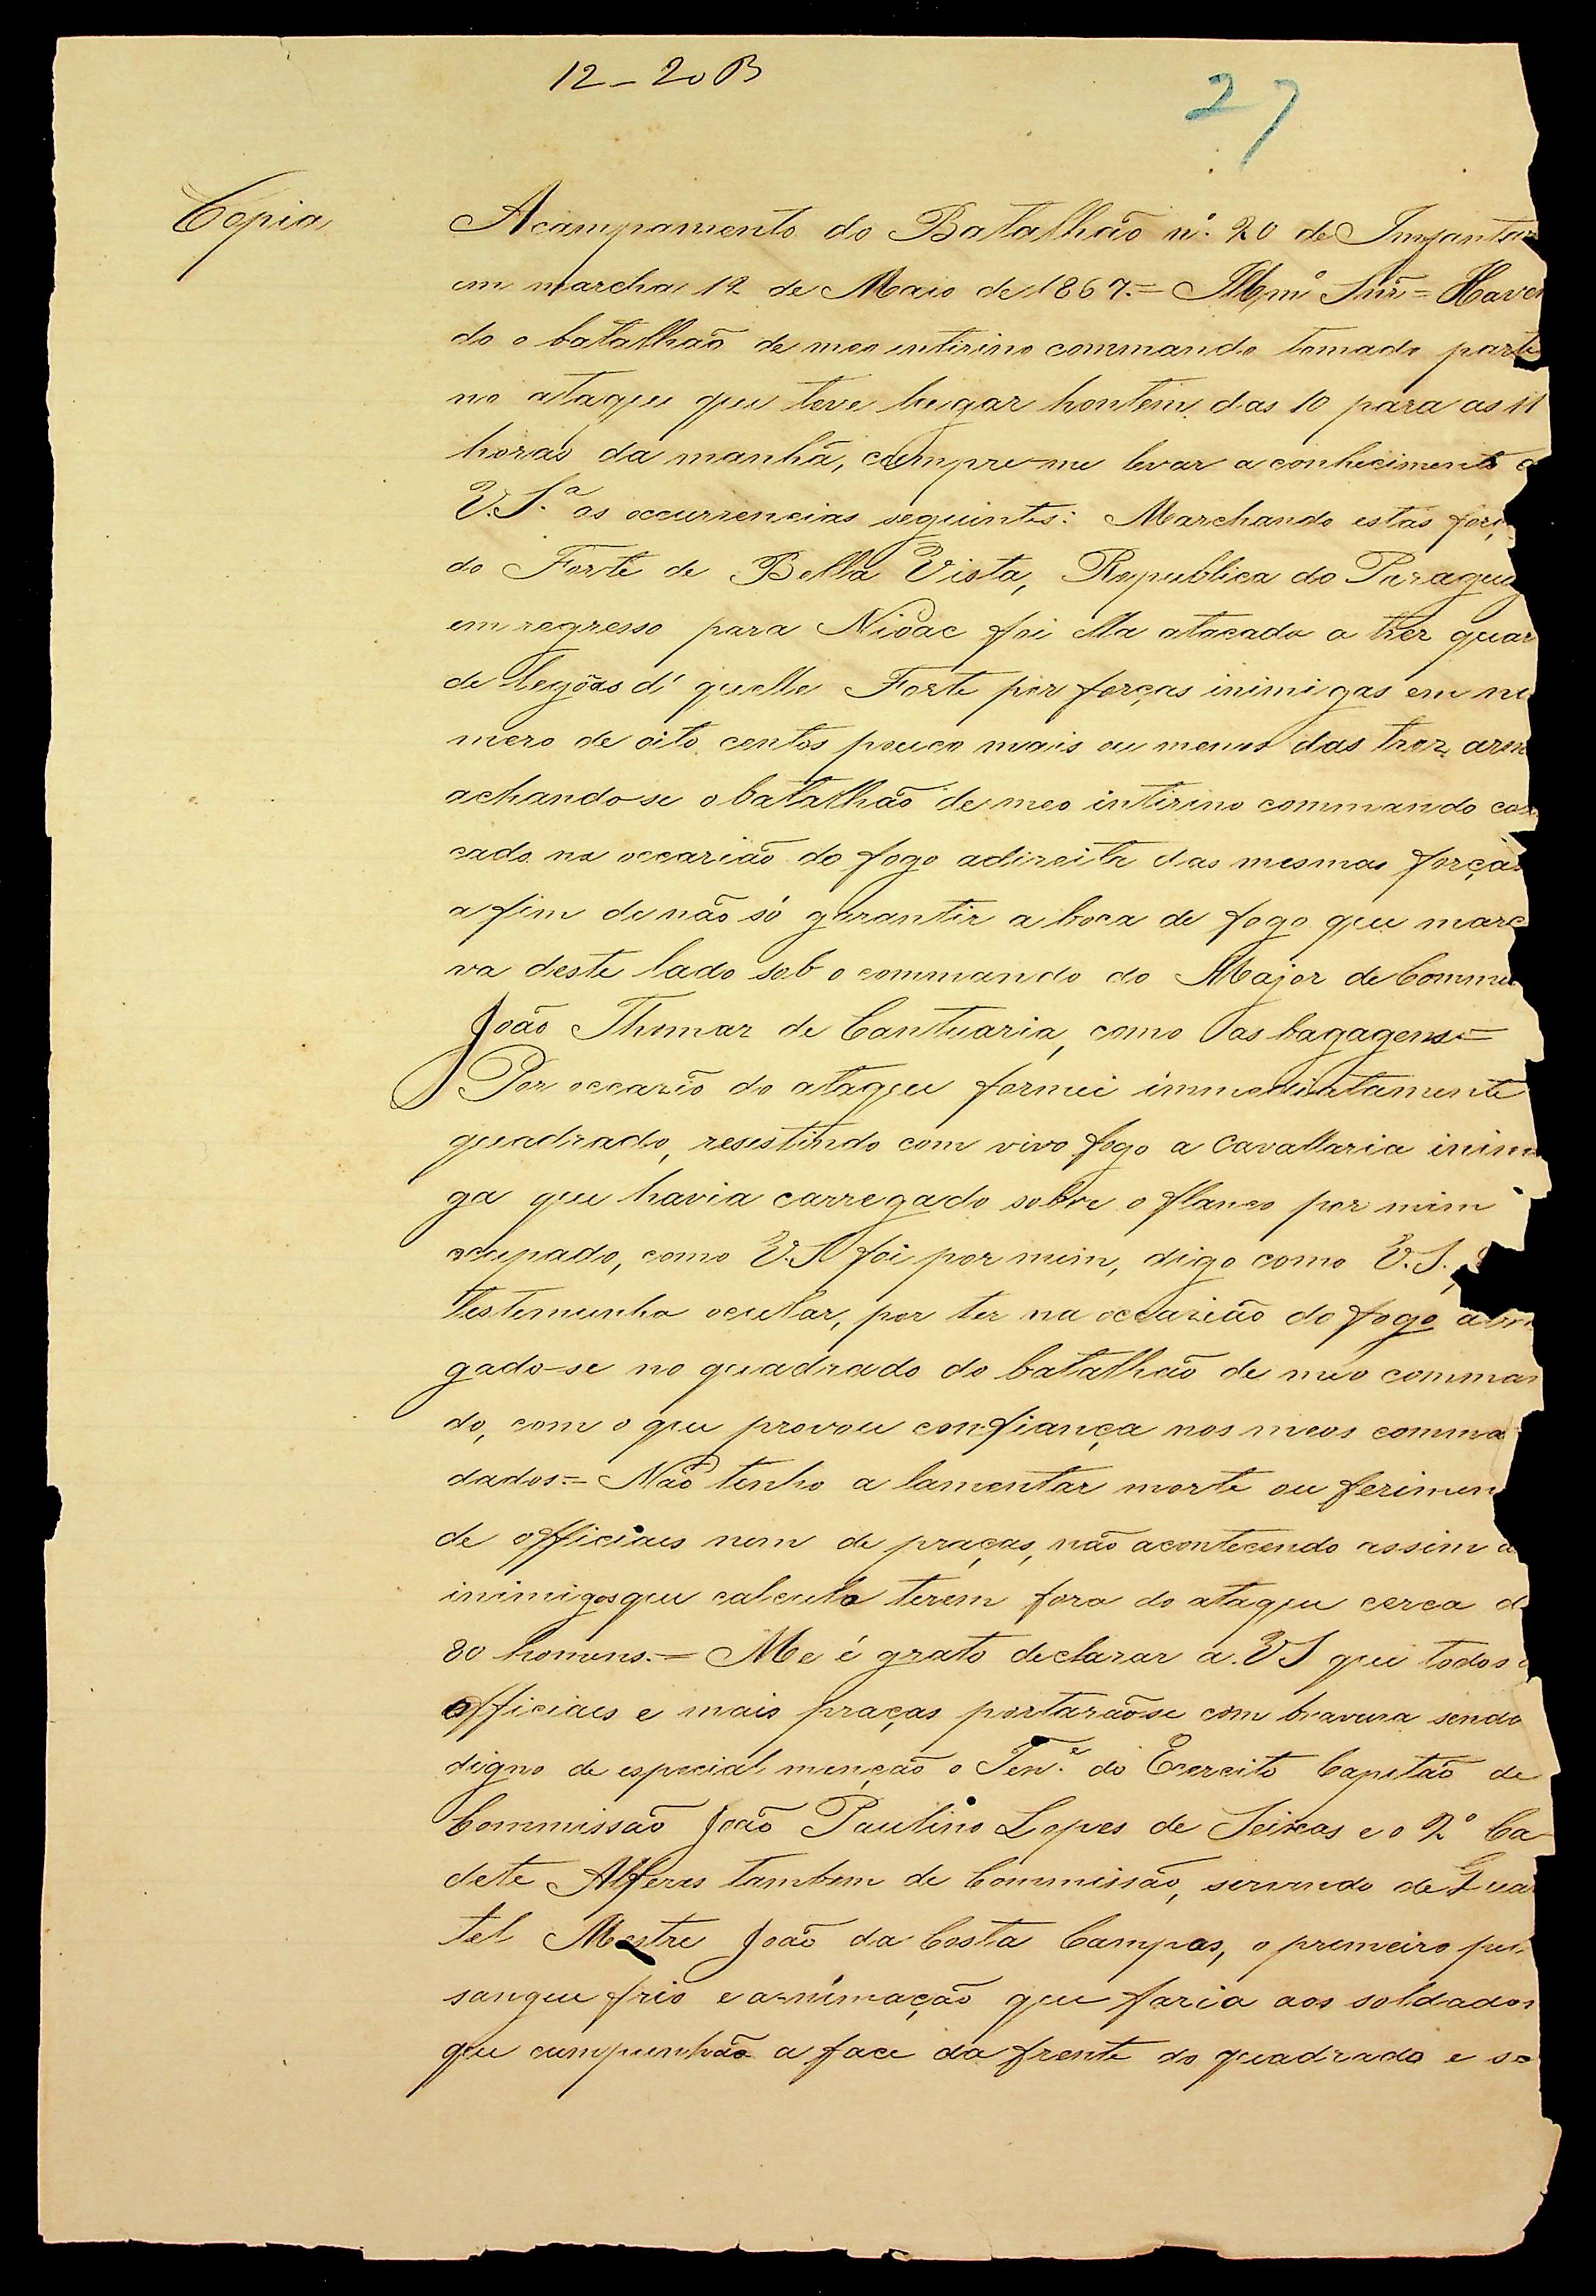 12-20B
27
Copia
Acampamento do Batalhão nº. 20 de Imfantar
em marcha 12 de Maio de 1867.= Illmº Snr = Haven
do o batalhão de meo intirino commando tomado parte
no ataque que teve lugar hontem das 10 para as 11
horas da manhã, cumpre-me levar a conhecimento
V.S.ª as occurrencias seguintes: Marchando estas forç
do Forte de Bella Vista, Republica do Paraguay
em regresso para Nioac foi ella atacada a trez quar
de legoas d'quelle Forte por forças inimigas em nu
mero de oito centos pouco mais ou menos das trez arm
achando-se o batalhão de meo intirino commando co
cado na occazião do fogo adireita das mesmas forças
a fim de não só garantir a boca de fogo que marc
va deste lado sob o commando do Major de Commi
João Thomaz de Cantuaria, como as bagagens.=
Por occazião do ataque formei immediatamente
quadrado, resistindo com vivo fogo a cavallaria inim
ga que havia carregado sobre o flanco por mim
ocupado, como V.S foi por mim, digo como V.S.,
testemunha ocular, por ter na occazião do fogo
gado-se no quadrado do batalhão de meo comman
do, com o que provou confiança nos meos comma
dados.= Não tenho a lamentar morte ou ferimen
de officiaes nem de praças, não acontecendo assim
inimigos que calculo terem fora do ataque cerca d
80 homens.= Me é grato declarar a VS que todos
officiaes e mais praças portarãose com bravura sendo
digno de especial menção o Ten.e do Exercito Capitão de
Commissão João Paulino Lopes de Seixas e o 2º Ca
dete Alferes tambem de Commissão, servindo de Quar
tel Mestre João da Costa Campos, o premeiro pe
sangue frio e annimação que fazia aos soldados
que cumpunhão a face da frente do quadrado e so